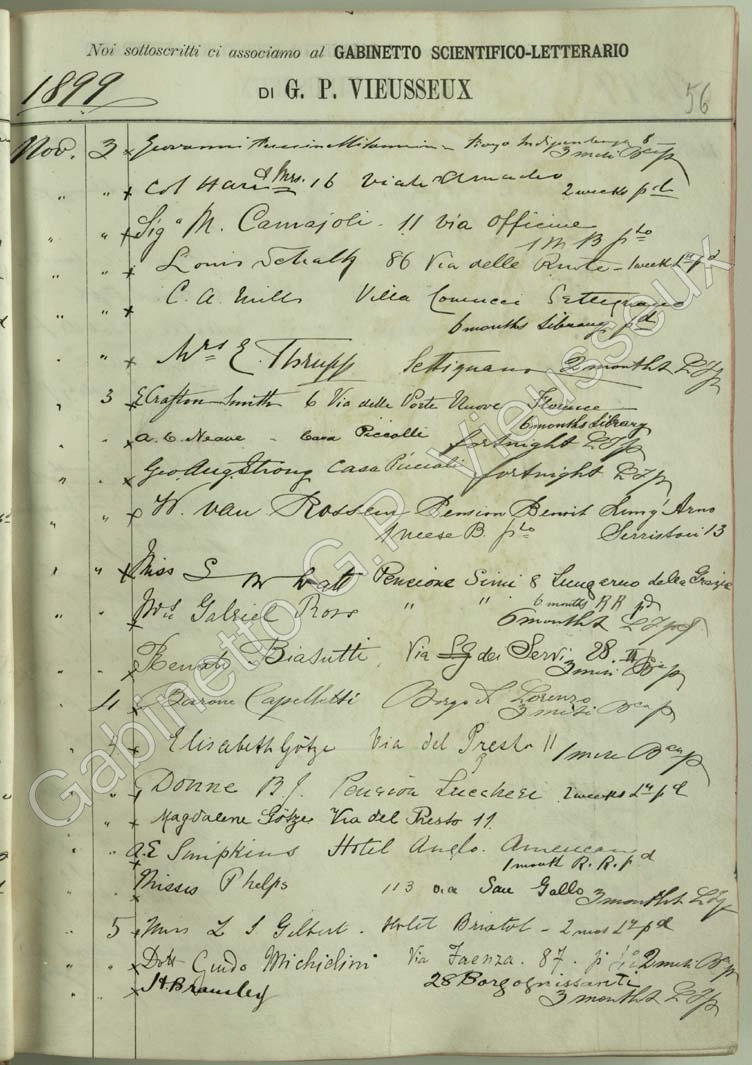 Noi sottoscritti ci associamo al GABINETTO SCIENTIFICO-LETTERARIO
1899
DI G. P. VIEUSSEUX
56
Nov. 2 Giovanni Piazza Indipendenza 8
3 mesi Bca p
Col & Mrs. 16 Viale Amedeo
2 weeks pd
Siga M. Camajoli. 11 via Officine
1 M B pto
Louis Schalk 86 Via delle Ruote - 1 week Lry pd
C. A. Mills Villa Settignano
6 months Library pd
Mrs E. Thrupp Settignano 2 months
3 E Crafton Smith 6 Via delle Porte Nuove Florence
6 months Library
A. C. Neave - Casa Piccolli fortnight
Geo. Aug. Strong Casa Piccioli fortnight
W. van Rossem Pension Benoit Lung'Arno
1 mese B. pto Serristori 13
Miss S W Watt Pencione Simi 8 Lungerno delle Grazie
6 months RR pd
Gabriel Ross " " 6 months
Renato Biasutti Via dei Servi 28.
3 mesi Bca p
4 Barone Capelletti Borgo S. Lorenzo
3 mesi Bca p
Elisabeth Götze Via del Presto 11 1 mese Bca p
Donne B. J. Pension Lucchesi 2 weeks Lry pd
Magdalene Götze Via del Presto 11.
A. E Simpkins Hotel Anglo. Americano
1 month R. R. pd
Misses Phelps 113 via San Gallo 3 months
5 Miss L S Gilbert. Hotel Bristol - 2 mos Lry pd
Dott Guido Michielini Via Faenza. 87. 2 mesi Bca p
H. Bramley 28 Borgognissanti
3 months
Gabinetto G.P. Vieusseux